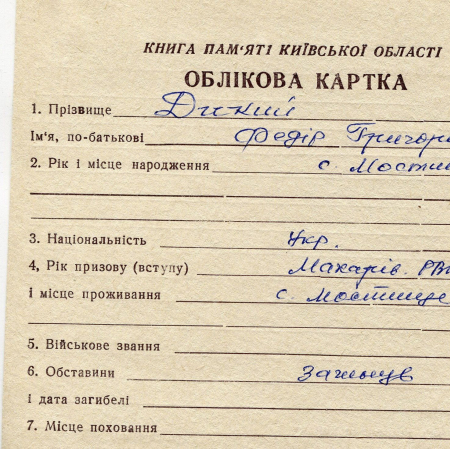 КНИГА ПАМ'ЯТІ КИЇВСЬКОЇ ОБЛАСТІ
ОБЛІКОВА КАРТКА
1. Прізвище Дикий
Ім'я, по-батькові Федір Григорі
2. Рік і місце народження с. Мостищ
3. Національність Укр.
4, Рік призову (вступу) Макарів. РВ
і місце проживання с. Мостище
5. Військове звання
6. Обставини Загинув
і дата загибелі
7. Місце поховання